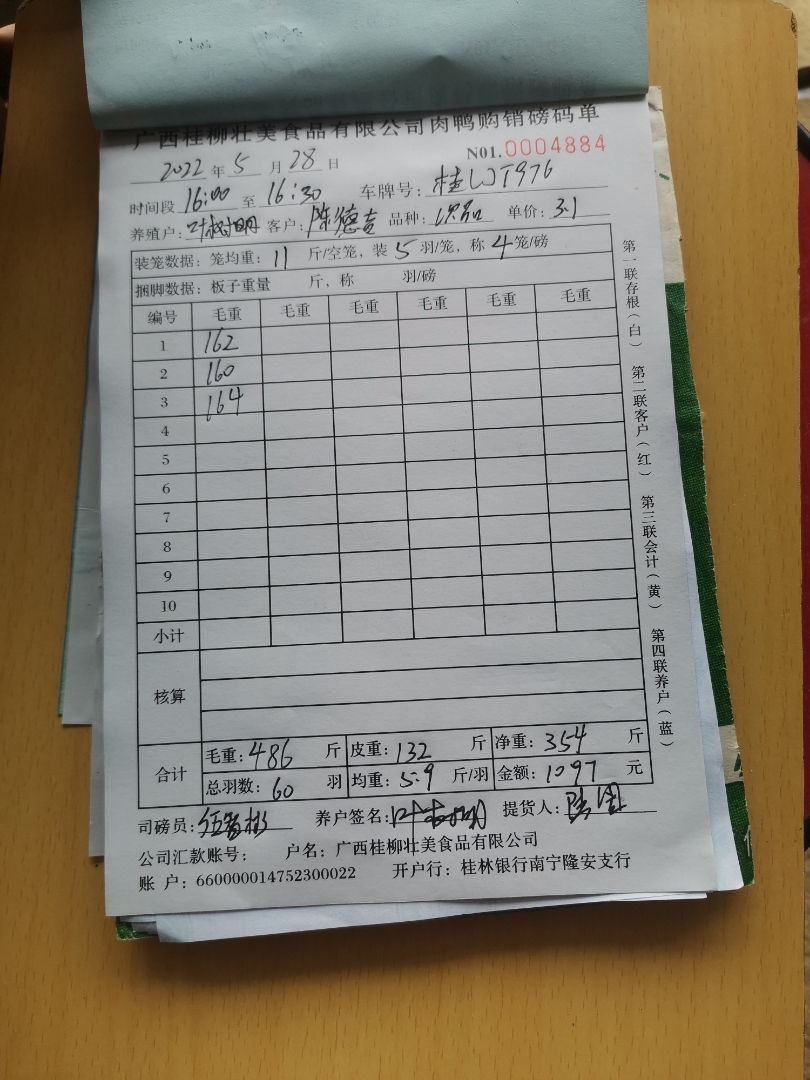 广西桂柳壮美食品有限公司肉鸭购销磅码单
2022年5月28日 N01.0004884
时间段16:00至16:30 车牌号:桂
养殖户:叶树明 客户:陈德吉 品种:次品 单价:3.1
装笼数据:笼均重:11斤/空笼,装5羽/笼,称4笼/磅
捆脚数据:板子重量 斤,称 羽/磅
编号 毛重 毛重 毛重 毛重 毛重 毛重
1 162
2 160
3 164
4
5
6
7
8
9
10
小计
核算
合计 毛重:486斤 皮重:132斤 净重:354斤
总羽数:60羽 均重:5.9斤/羽 金额:1097元
司磅员: 养户签名:叶树明 提货人:
公司汇款账号: 户名:广西桂柳壮美食品有限公司
账 户:660000014752300022 开户行:桂林银行南宁隆安支行
第一联存根(白) 第二联客户(红) 第三联会计(黄) 第四联养户(蓝)